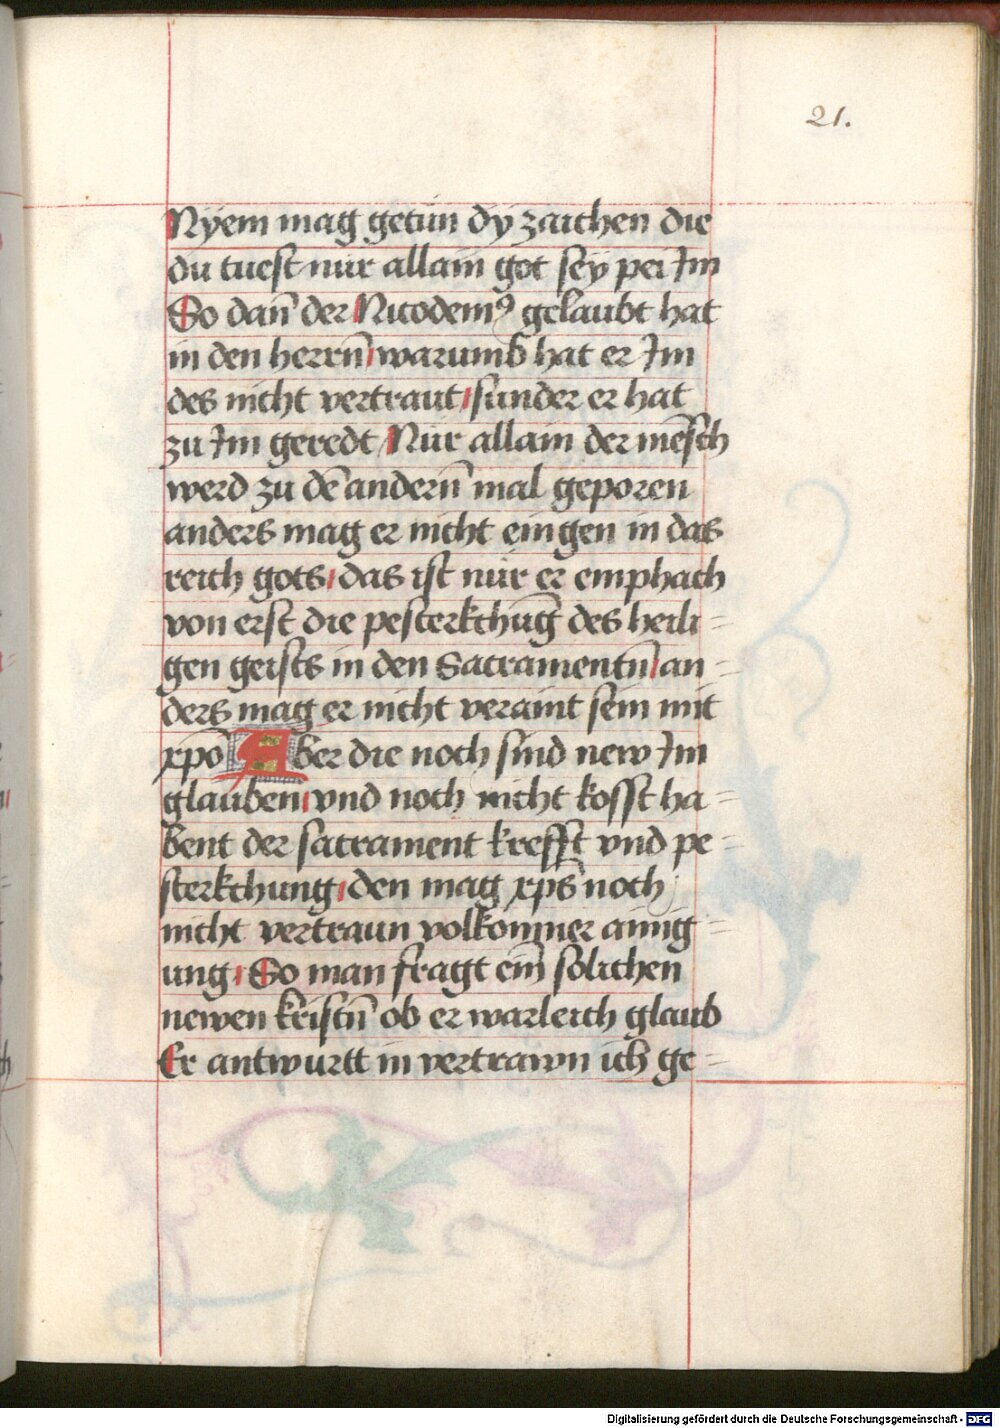 21.
Nyem mag getun dy zaichen die
du tuest nur allain got sey pei Im
So dan̄ der Nicodemꝰ gelaubt hat
in den herrn̄ warumb hat er Im
des nicht vertraut / sunder er hat
zu Im geredt Nur allain der mēsch
werd zu dē andern̄ mal geporen
anders mag er nicht eingen in das
reich gots / das ist nur er emphach
von erst die pesterkchūg des heili=
gen geists in den Sacramentn̄ / an=
ders mag er nicht veraint sein mit
xpō Aber die noch sind new Im
glauben / vnd noch nicht kosst ha=
bent der sacrament krefft vnd pe=
sterkchung / den mag xp̄s noch
nicht vertraun volkommer ainig=
ung / So man fragt ein̄ solichen
newen kristn̄ ob er warleich glaub
Er antwurtt in vertrawn ich ge=
Digitalisierung gefördert durch die Deutsche Forschungsgemeinschaft - DFG